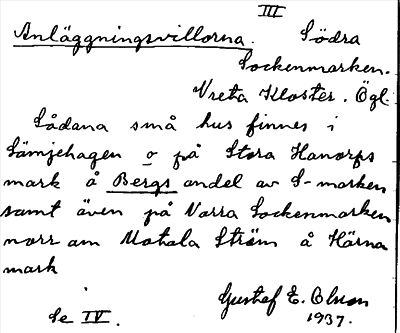 III
Anläggningsvillorna. Södra
Sockenmarken.
Vreta Kloster. Ögl.
Sådana små hus finnes i
Sämjehagen o på Stora Hanorps
mark å Bergs andel av S-marken
samt även på Norra Sockenmarken
norr om Motala Ström å Härna
mark
Gustef E. Olson
Se IV. 1937.